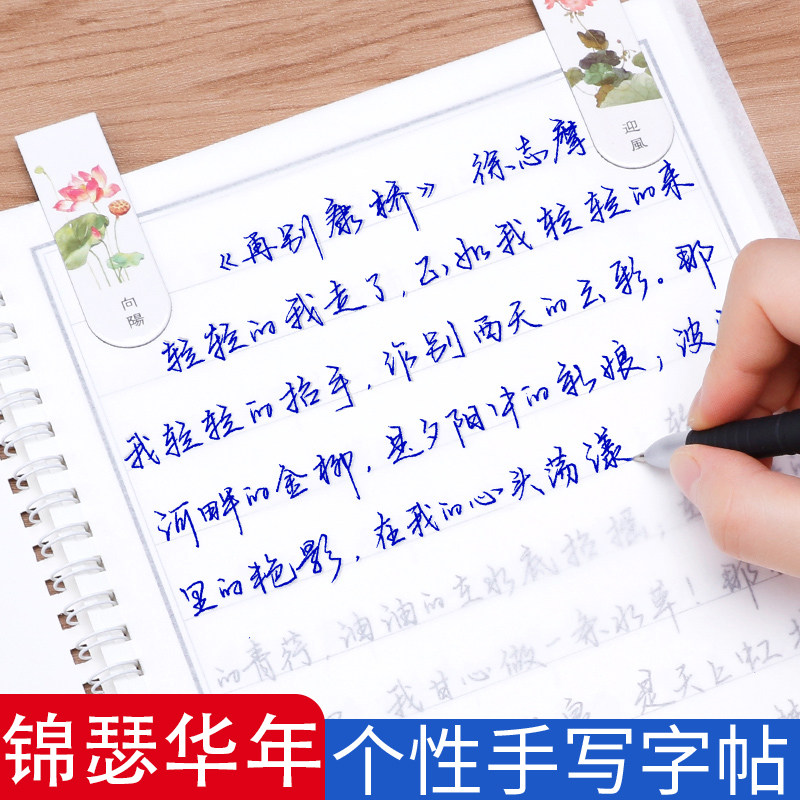 迎風
向陽
《再别康桥》 徐志摩
轻轻的我走了,正如我轻轻的来
我轻轻的招手,作别西天的云彩。那
河畔的金柳,是夕阳中的新娘;波
里的艳影,在我的心头荡漾
的青荇,油油的在水底招摇;
我甘心做一条水草!那
是天上虹
锦瑟华年
个性手写字帖